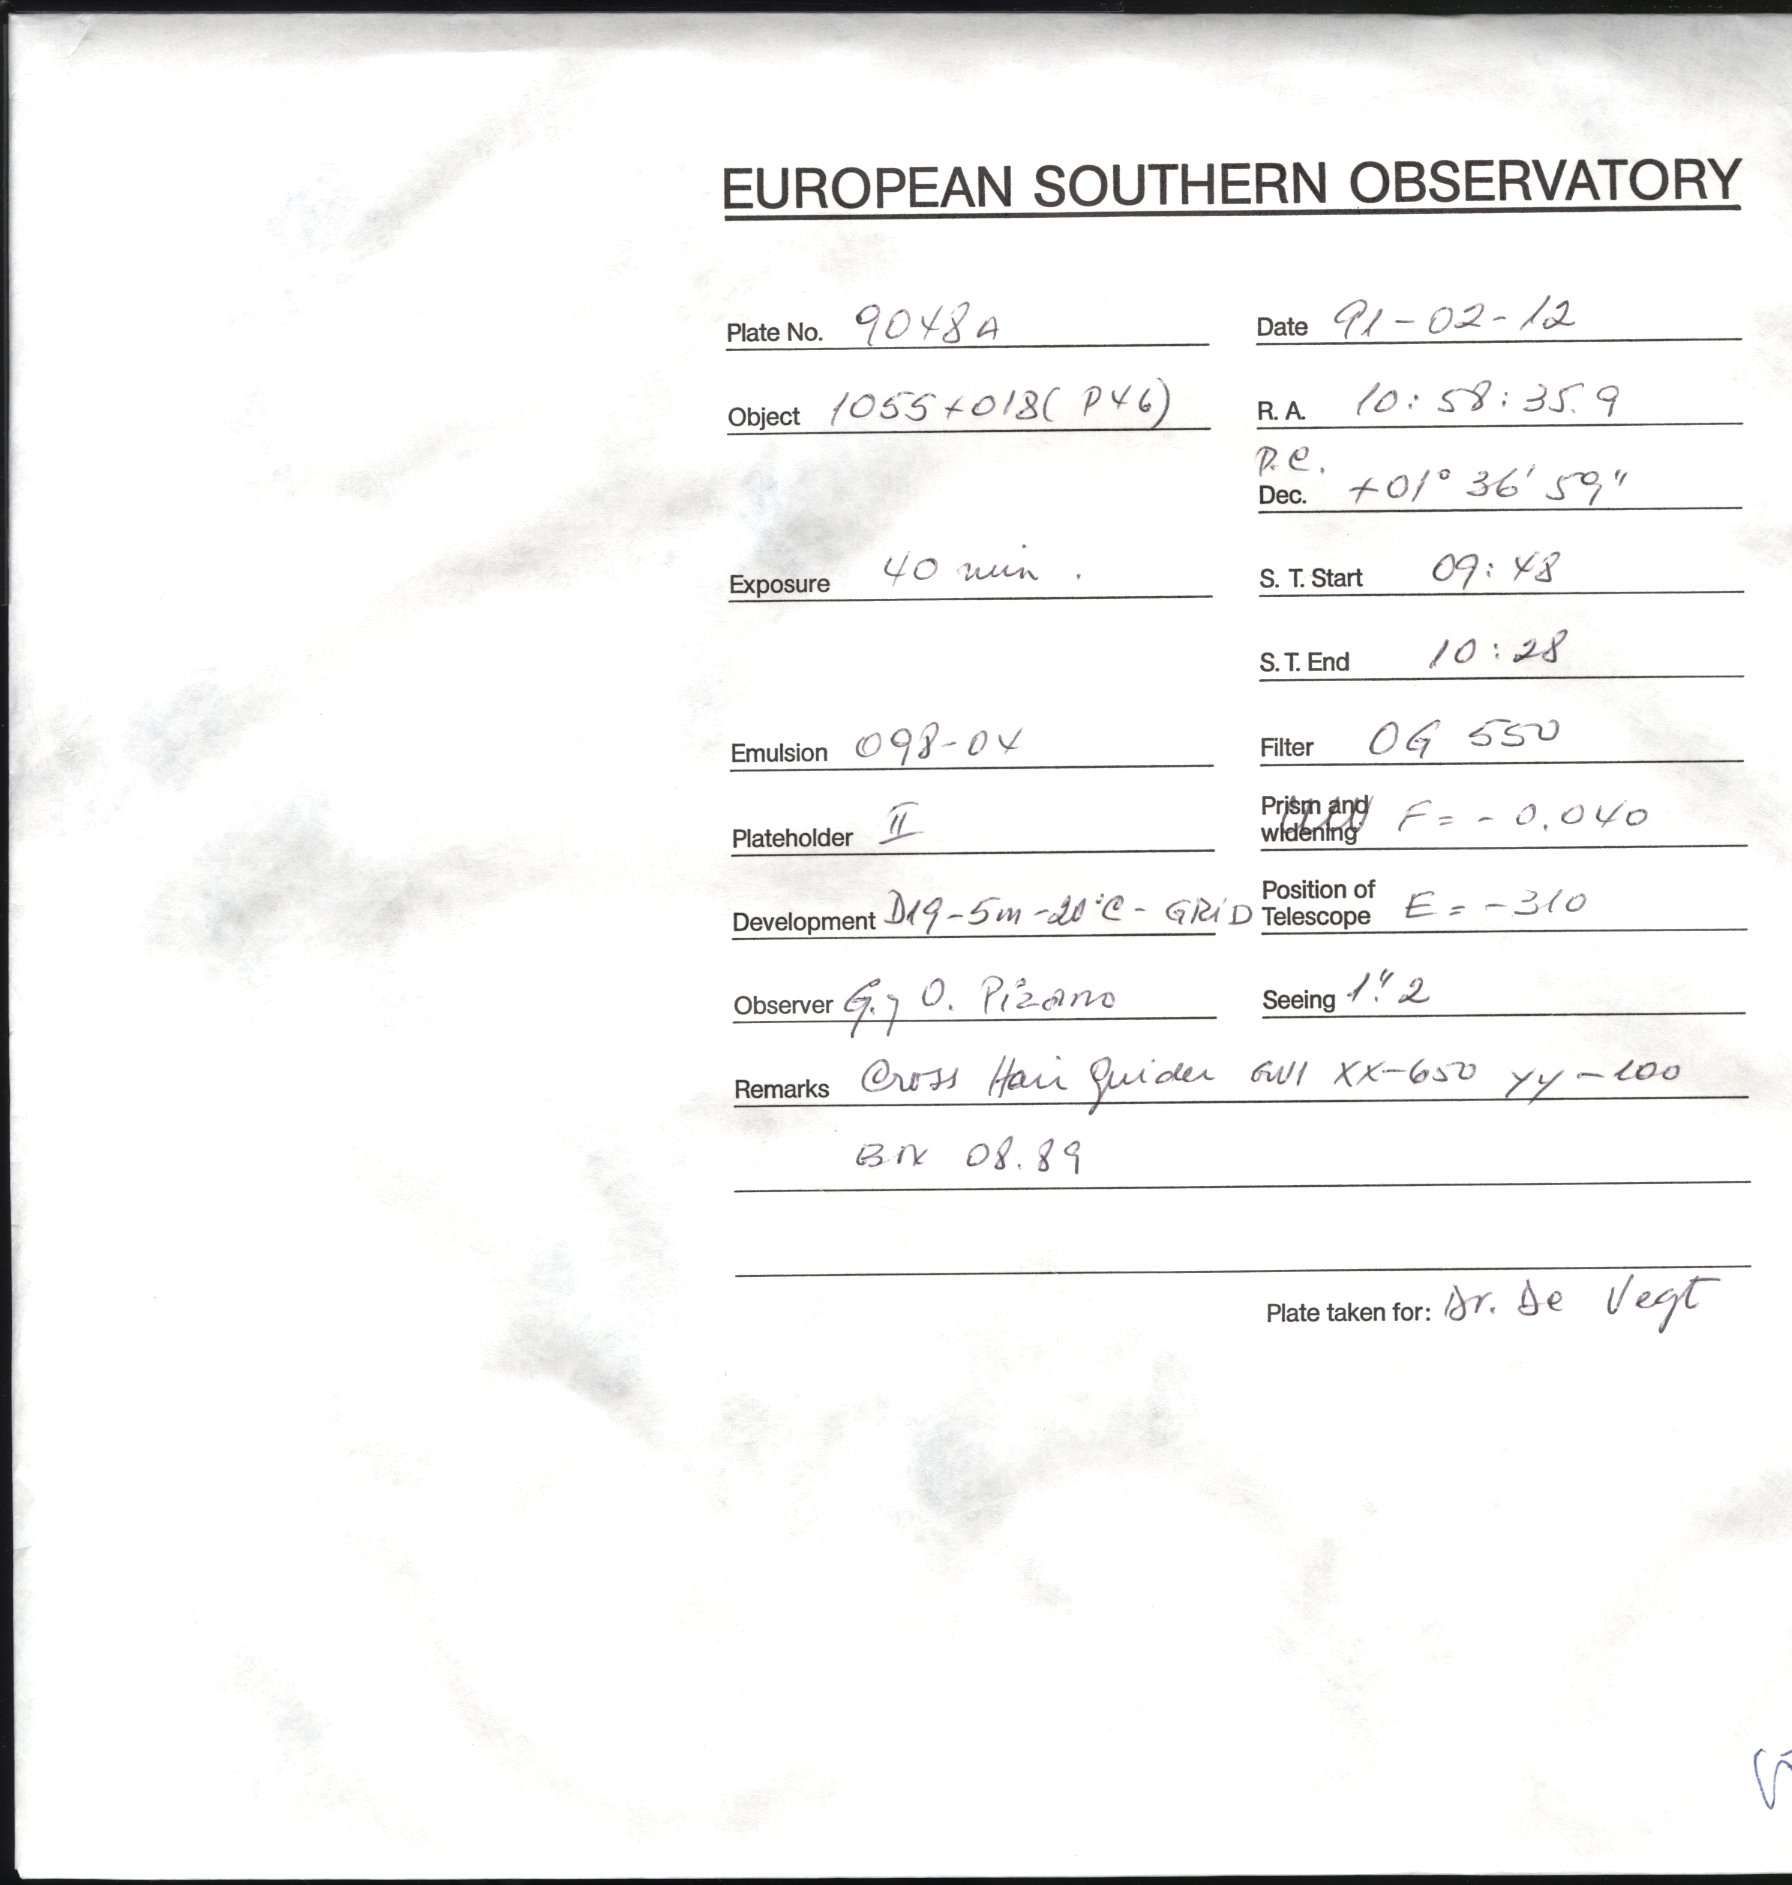 EUROPEAN SOUTHERN OBSERVATORY
Plate No. 9048A Date 91-02-12
Object 1055+018 (P46) R. A. 10:58:35.9
P.C.
Dec. +01° 36' 59"
Exposure 40 min. S. T. Start 09:48
S. T. End 10:28
Emulsion 098-04 Filter OG 550
Plateholder II Prism and widening F = -0.040
Development D19-5m-20°C-GRiD Position of Telescope E = -310
Observer G. y O. Pizarro Seeing 1".2
Remarks Cross Hair Guider GW1 XX-650 YY-100
Box 08.89
Plate taken for: Dr. De Vegt